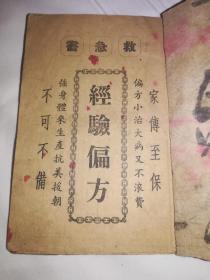 救急書
家傳至保
偏方小治大病又不浪費
經驗偏方
強身體來生產抗美援朝
不可不備